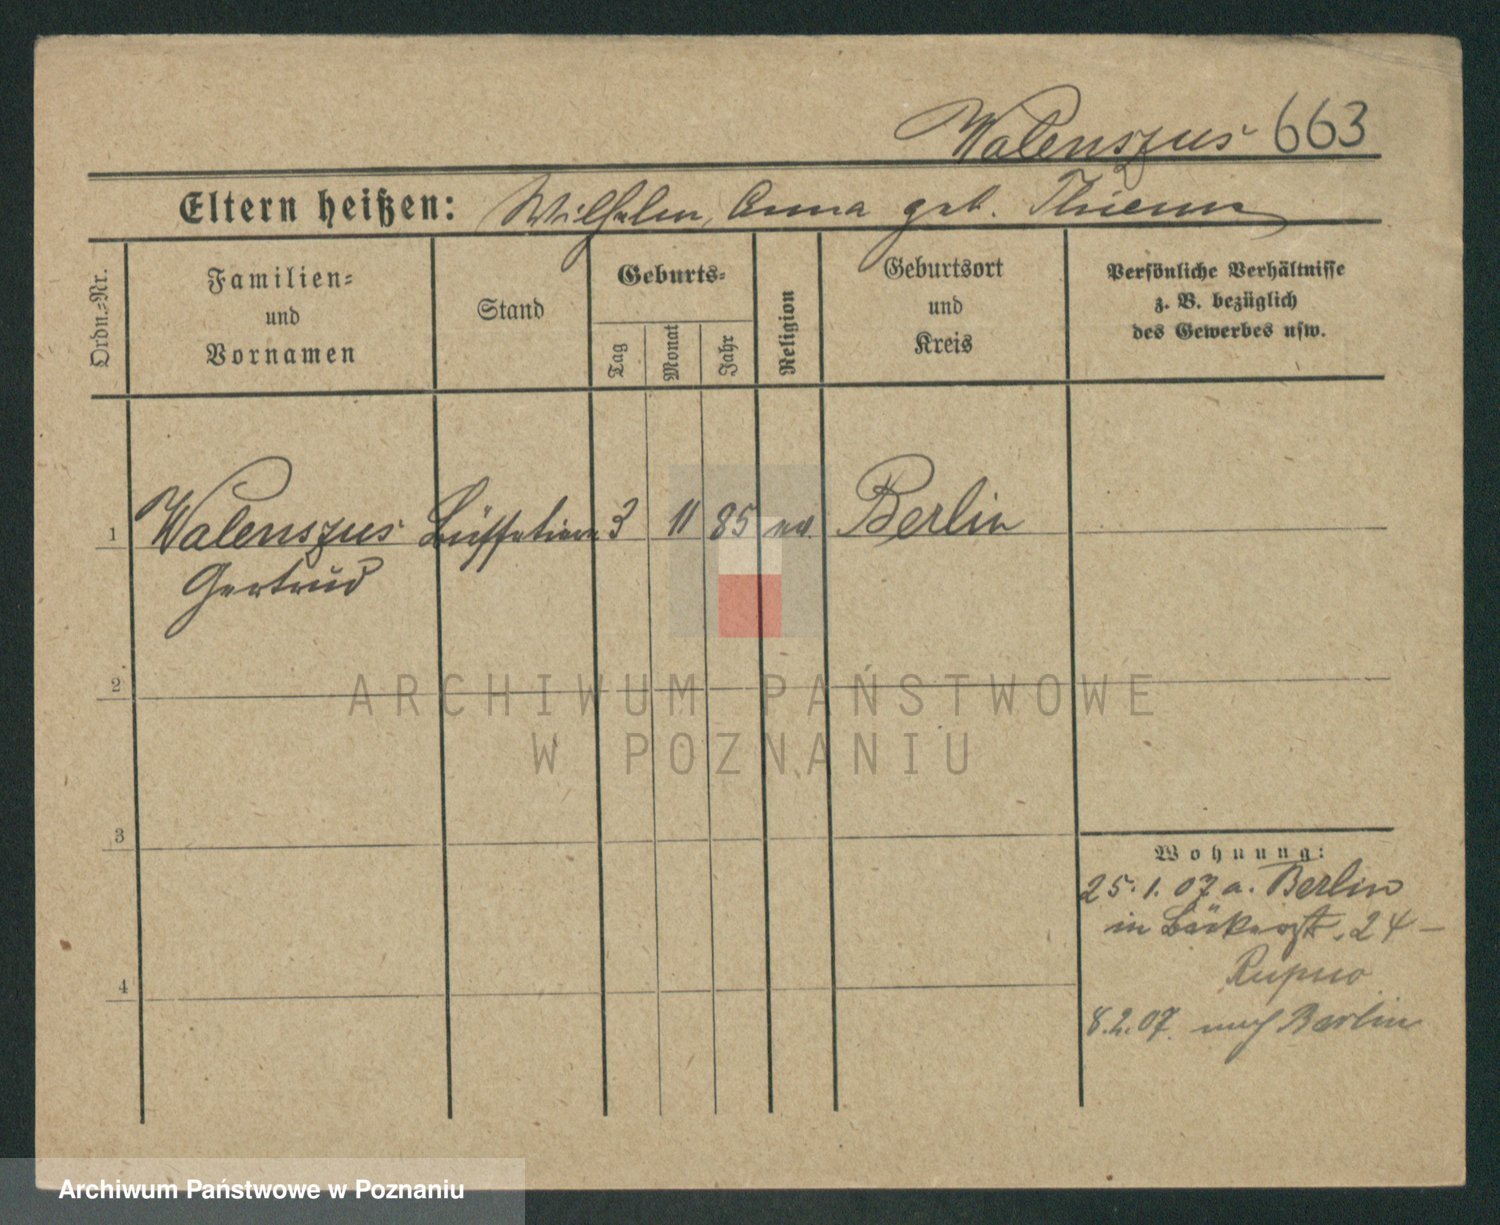 Walenszus 663
Eltern heißen: Wilhelm, Anna geb. Thiem
Ordn.-Nr.
Familien-
und
Vornamen
Stand
Geburts-
Tag
Monat
Jahr
Religion
Geburtsort
und
Kreis
Persönliche Verhältnisse
z. B. bezüglich
des Gewerbes usw.
1 Walenszus Büffetiere 3 11 85 ev. Berlin
Gertrud
2
3
4
Wohnung:
25.1.07 a. Berlin
in Bäckerstr. 24 -
8.2.07. nach Berlin
ARCHIWUM PAŃSTWOWE
W POZNANIU
Archiwum Państwowe w Poznaniu